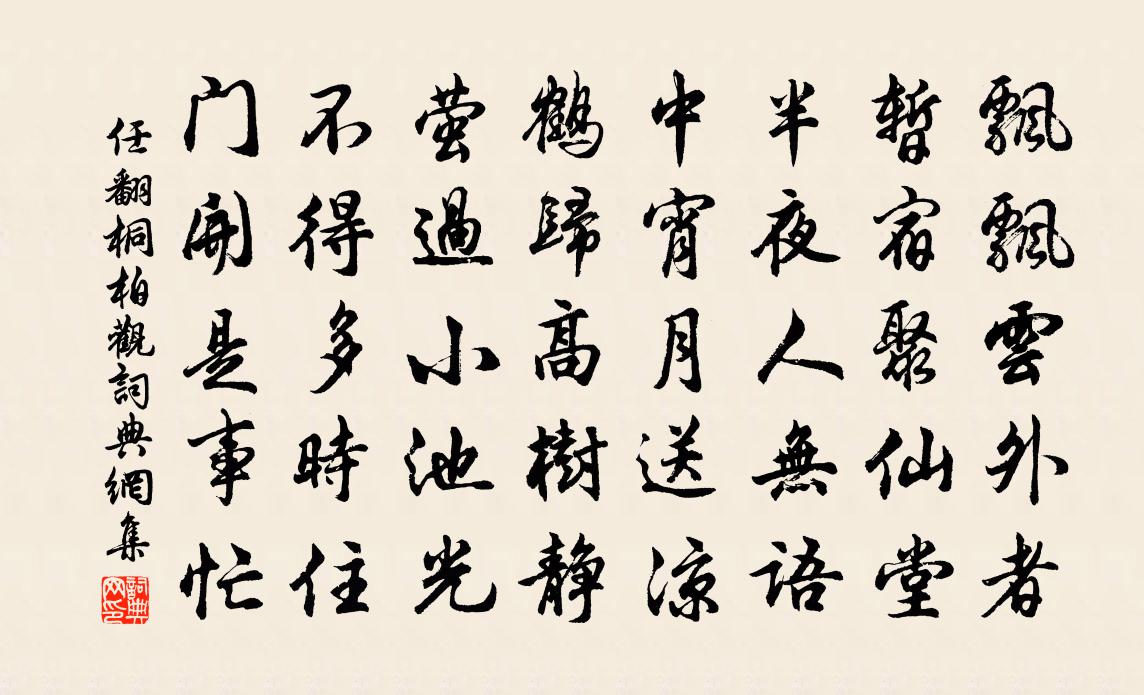 飄飄雲外者
暫宿聚仙堂
半夜人無語
中宵月送涼
鶴歸高樹静
萤過小池光
不得多時住
门開是事忙
任翻桐柏觀詞典網集
詞典网印